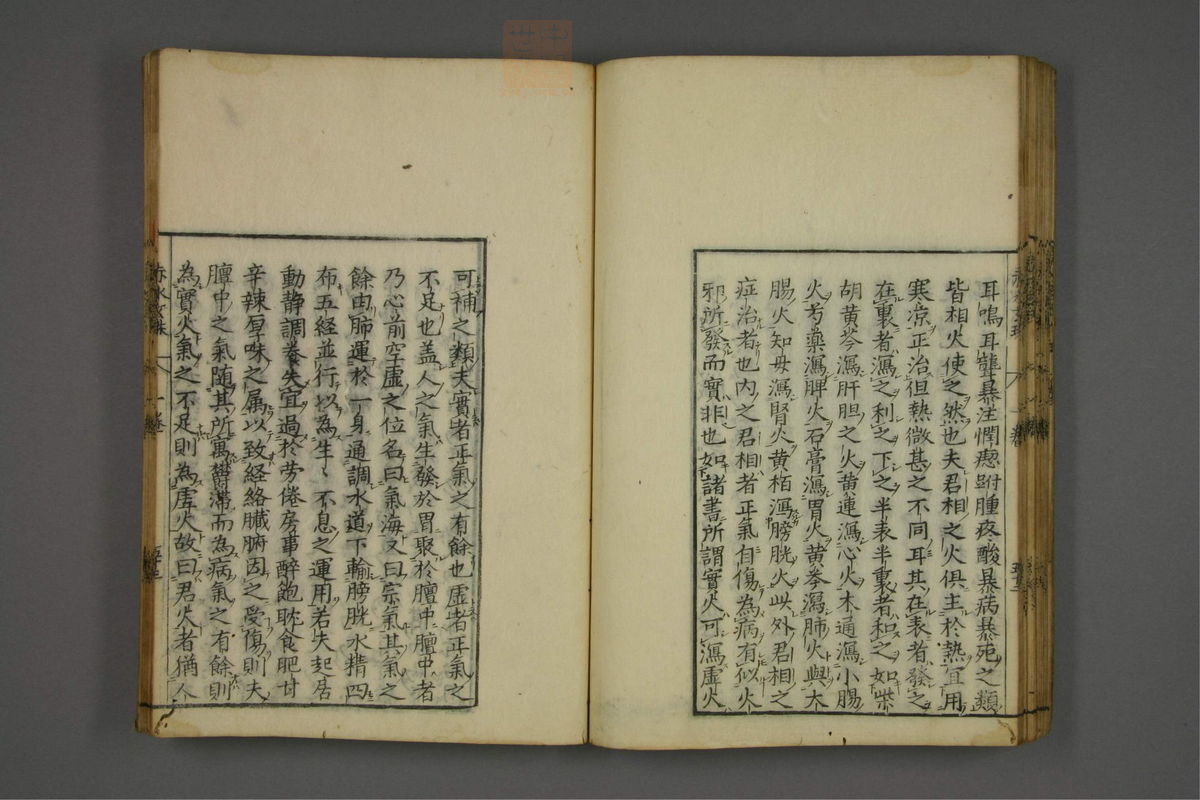 耳鳴耳聾暴注𥆧瘛跗腫疼酸暴病暴死之類
皆相火使之然也夫君相之火俱主於熱宜用
寒凉正治但熱微甚之不同耳其在表者發之
在裏者瀉之利之下之半表半裏者和之如柴
胡黄芩瀉肝胆之火黄連瀉心火木通瀉小腸
火芍藥瀉脾火石膏瀉胃火黄芩瀉肺火與大
腸火知母瀉腎火黄栢瀉膀胱火此外君相之
症治者也内之君相者正氣自傷為病有似火
邪所發而實非也如諸書所謂實火可瀉虚火
可補之類夫實者正氣之有餘也虚者正氣之
不足也盖人之氣生發於胃聚於膻中膻中者
乃心前空虚之位名曰氣海又曰宗氣其氣之
餘由肺運於一身通調水道下輸膀胱水精四
布五経並行以為生〻不息之運用若失起居
動静調養失宜過於労倦房事醉飽耽食肥甘
辛辣厚味之属以致経絡臓腑因之受傷則夫
膻中之氣随其所寓欝滞而為病氣之有餘則
為實火氣之不足則為虚火故曰君火者猶人
赤水玄珠
一巻